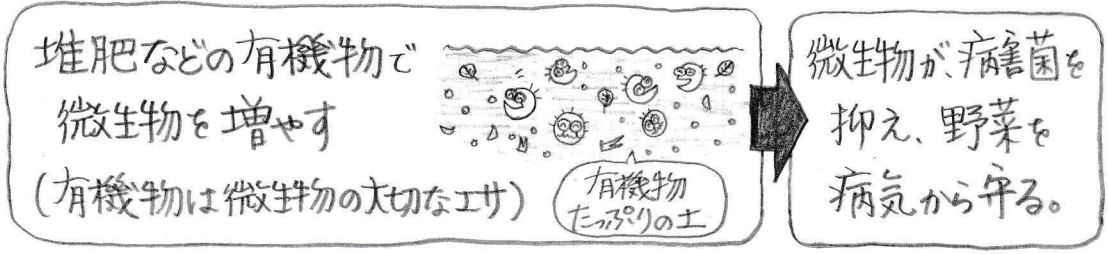 堆肥などの有機物で
微生物を増やす
(有機物は微生物の大切なエサ)
有機物
たっぷりの土
微生物が、病害菌を
抑え、野菜を
病気から守る。